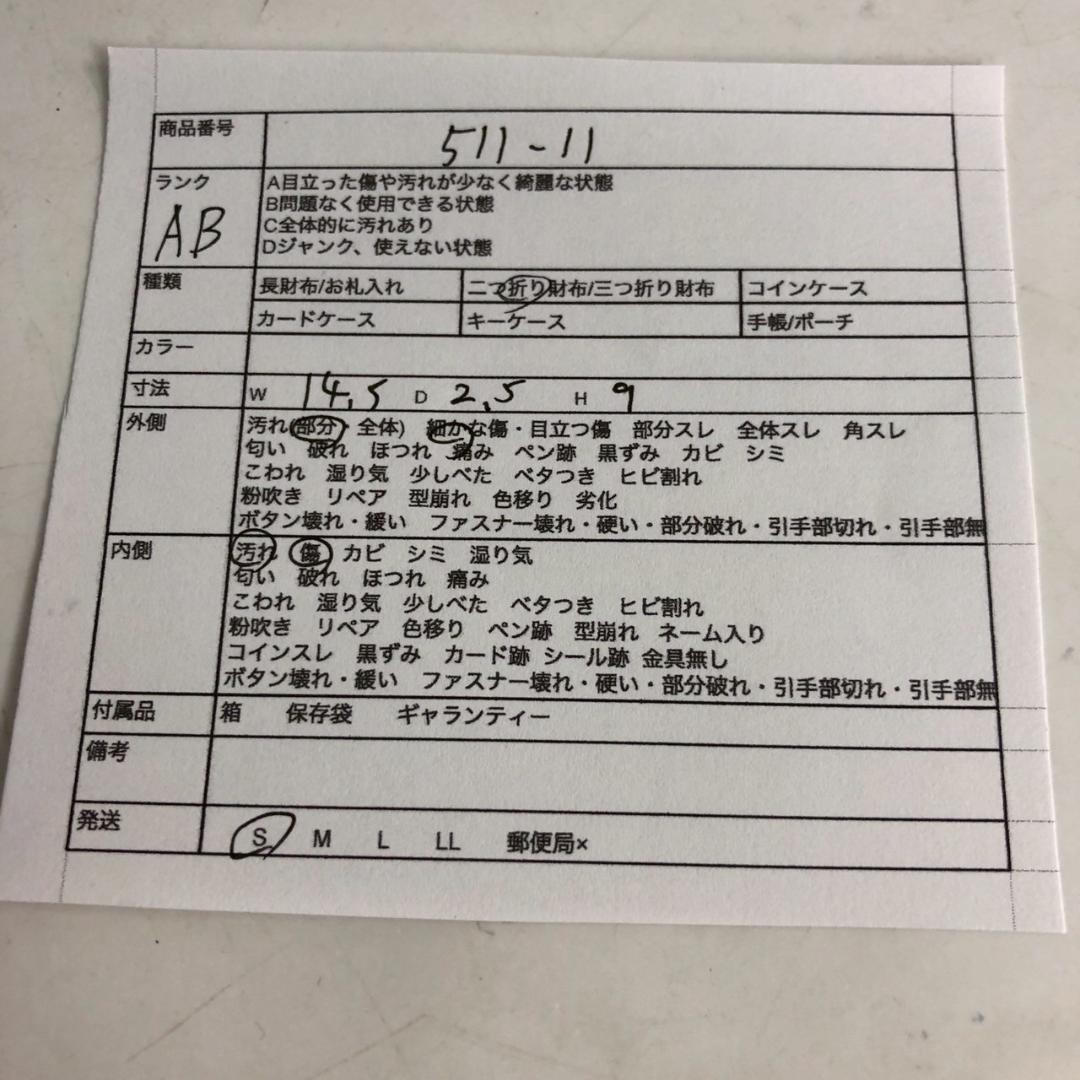 商品番号 511-11
ランク A目立った傷や汚れが少なく綺麗な状態
AB B問題なく使用できる状態
C全体的に汚れあり
Dジャンク、使えない状態
種類 長財布/お札入れ 二つ折り財布/三つ折り財布 コインケース
カードケース キーケース 手帳/ポーチ
カラー
寸法 W 14.5 D 2.5 H 9
外側 汚れ(部分・全体) 細かな傷・目立つ傷 部分スレ 全体スレ 角スレ
匂い 破れ ほつれ 痛み ペン跡 黒ずみ カビ シミ
こわれ 湿り気 少しべた ベタつき ヒビ割れ
粉吹き リペア 型崩れ 色移り 劣化
ボタン壊れ・緩い ファスナー壊れ・硬い・部分破れ・引手部切れ・引手部無
内側 汚れ 傷 カビ シミ 湿り気
匂い 破れ ほつれ 痛み
こわれ 湿り気 少しべた ベタつき ヒビ割れ
粉吹き リペア 色移り ペン跡 型崩れ ネーム入り
コインスレ 黒ずみ カード跡 シール跡 金具無し
ボタン壊れ・緩い ファスナー壊れ・硬い・部分破れ・引手部切れ・引手部無
付属品 箱 保存袋 ギャランティー
備考
発送 S M L LL 郵便局×